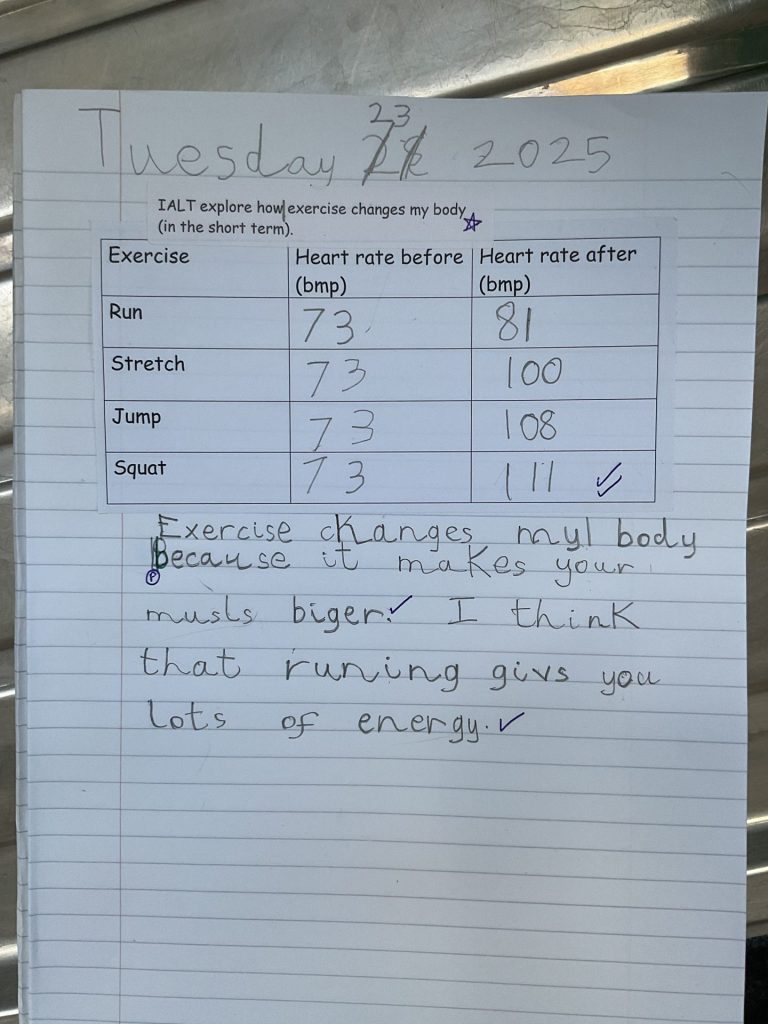 23
Tuesday 2025
IALT explore how exercise changes my body
(in the short term).
Exercise Heart rate before (bmp) Heart rate after (bmp)
Run 73 81
Stretch 73 100
Jump 73 108
Squat 73 111
Exercise changes myl body
Because it makes your
P
musls biger. I think
that runing givs you
lots of energy.